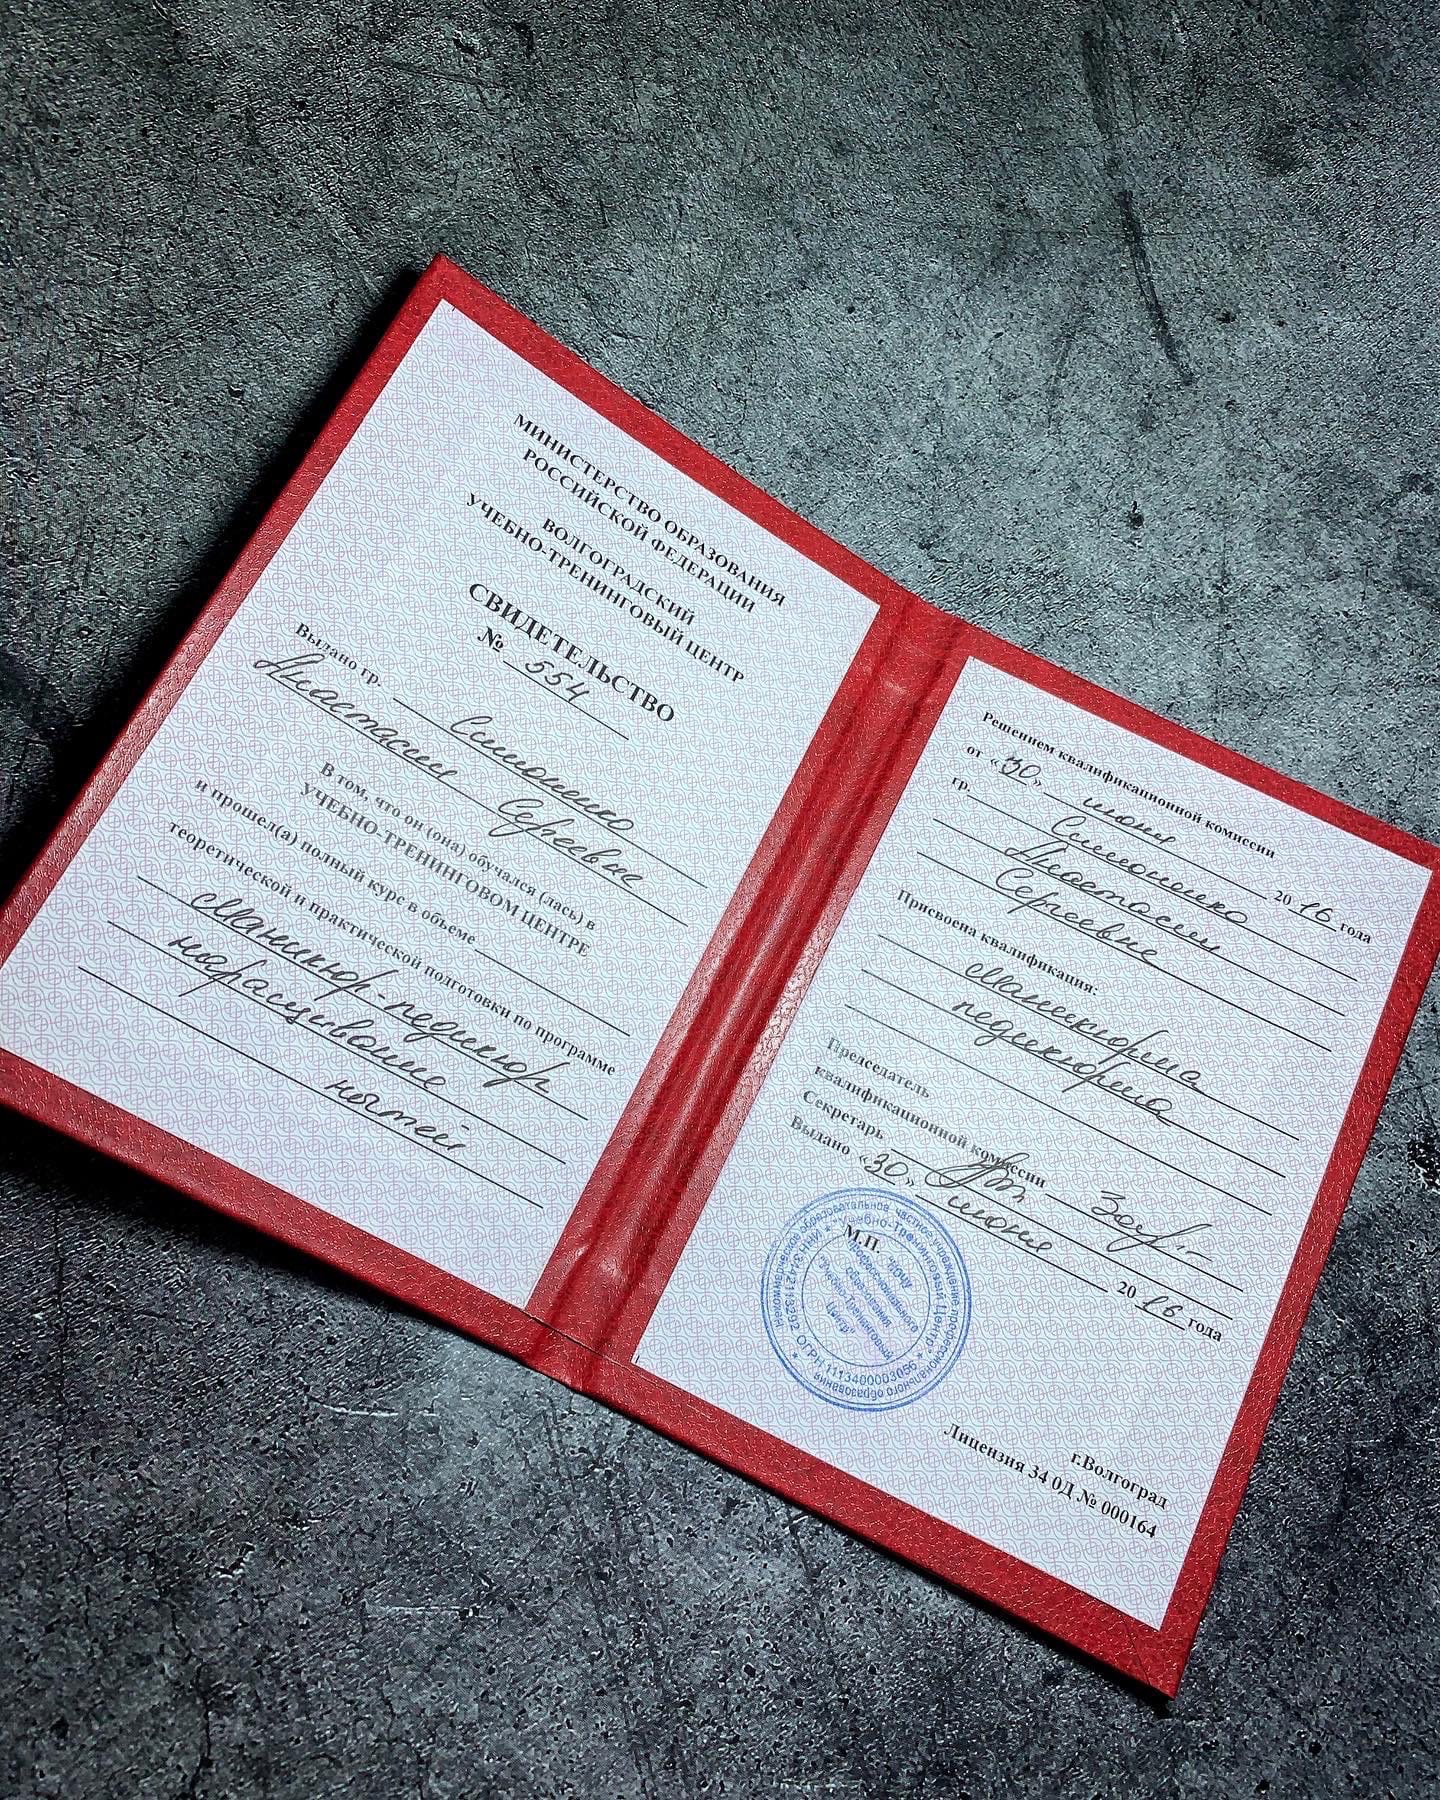 МИНИСТЕРСТВО ОБРАЗОВАНИЯ
РОССИЙСКОЙ ФЕДЕРАЦИИ
ВОЛГОГРАДСКИЙ
УЧЕБНО-ТРЕНИНГОВЫЙ ЦЕНТР
СВИДЕТЕЛЬСТВО
№ 554
Выдано гр. Симоненко
Анастасии Сергеевне
В том, что он (она) обучался (лась) в
УЧЕБНО-ТРЕНИНГОВОМ ЦЕНТРЕ
и прошел(а) полный курс в объеме
теоретической и практической подготовки по программе
Маникюр-педикюр
наращивание
ногтей
Решением квалификационной комиссии
от «30» июня 20 16 года
гр. Симоненко
Анастасии
Сергеевне
Присвоена квалификация:
Маникюрша
педикюрша
Председатель
квалификационной комиссии
Секретарь
Выдано «30» июня 20 16 года
М.П.
Некоммерческое образовательное частное учреждение профессионального образования
"Учебно-Тренинговый Центр" * ОГРН 1113400003056 * ИНН
НОЧУ
профессионального
образования
"Учебно-Тренинговый
Центр"
г.Волгоград
Лицензия 34 ОД № 000164